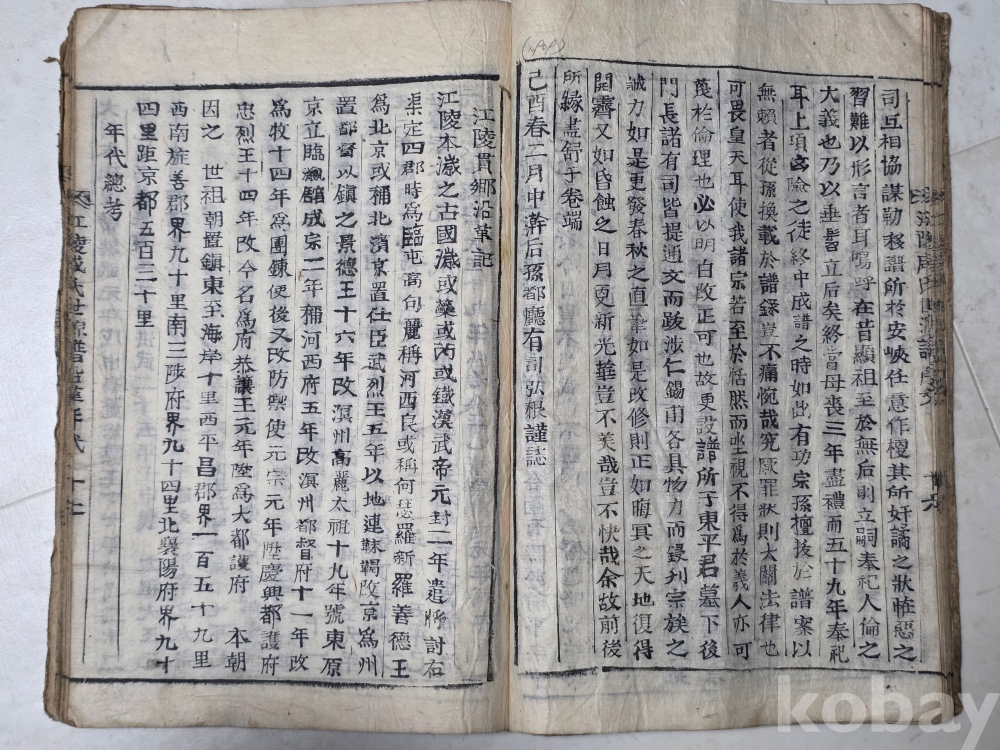 司互相協謀勒移譜所於安峽任意作梗其所奸譎之狀恠惡之
習難以形言者耳嗚呼在昔顯祖至於無后則立嗣奉祀人倫之
大義也乃以垂髫立后矣終當母喪三年盡禮而五十九年奉祀
耳上項凶險之徒終中成譜之時如此有功宗孫擅拔於譜案以
無賴者從孫換載於譜錄豈不痛惋哉究厥罪狀則大關法律也
可畏皇天耳使我諸宗若至於恬然而坐視不得爲於義人亦可
蔑於倫理也必以明白改正可也故更設譜所于東平君墓下後
門長諸有司皆提通文而跋涉仁錫甫各具物力而鋟刊宗族之
誠力如是更發春秋之直筆如是改修則正如晦冥之天地復得
開霽又如昏蝕之日月更新光華豈不美哉豈不快哉余故前後
所緣畫舒于卷端
己酉春二月中澣后孫都廳有司弘根謹誌
江陵貫鄉沿革記
江陵本濊之古國濊或蘂或芮或鐵漢武帝元封二年遣將討右
渠定四郡時爲臨屯高句麗稱河西良或稱何瑟羅新羅善德王
爲北京或稱北濱京置仕臣武烈王五年以地連靺鞨改京爲州
置都督以鎭之景德王十六年改溟州高麗太祖十九年號東原
京立臨瀛館成宗二年稱河西府五年改溟州都督府十一年改
爲牧十四年爲團鍊使後又改防禦使元宗元年陞慶興都護府
忠烈王十四年改今名爲府恭讓王元年陞爲大都護府 本朝
因之 世祖朝置鎭東至海岸十里西平昌郡界一百五十九里
西南旌善郡界九十里南三陟府界九十四里北襄陽府界九十
四里距京都五百三十里
年代總考
kobay